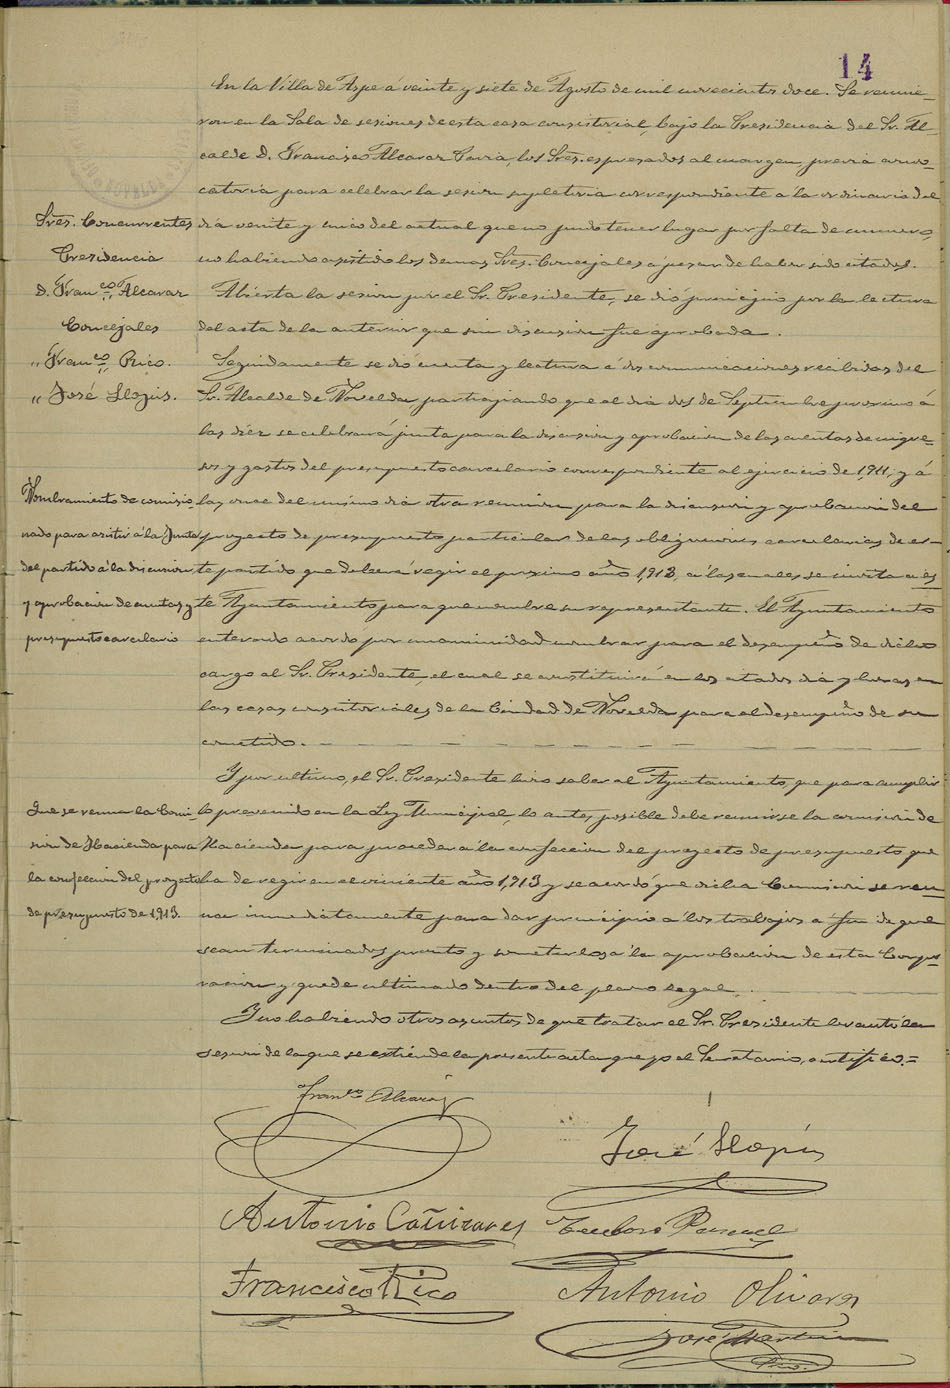 14
En la Villa de Aspe á veinte y siete de Agosto de mil novecientos doce. Se reunie-
ron en la Sala de sesiones de esta casa consistorial, bajo la Presidencia del Sr. Al-
calde D. Francisco Alcaraz Cavia, los Sres. espresados al margen, previa convo-
catoria para celebrar la sesion supletoria correspondiente á la ordinaria del
dia veinte y cinco del actual que no pudo tener lugar por falta de numero,
no habiendo asistido los demas Sres. Concejales a pesar de haber sido citados.
Sres. Concurrentes
Presidencia
D. Franco. Alcaraz
Concejales
" Franco. Rico.
" José Llopis.
Abierta la sesion por el Sr. Presidente, se dió principio por la lectura
del acta de la anterior que sin discusion fue aprobada.
Seguidamente se dió cuenta y lectura á dos comunicaciones recibidas del
Sr. Alcalde de Novelda participando que el dia dos de Septiembre proximo á
las diez se celebrará junta para la discusion y aprobacion de las cuentas de ingre-
sos y gastos del presupuesto carcelario correspondiente al ejercicio de 1,911, y á
las once del mismo dia otra reunion para la discusion y aprobacion del
proyecto de presupuesto particular de las obligaciones carcelarias de es-
te partido que deberá regir el proximo año 1,913, á las cuales se invita a es
te Ayuntamiento para que nombre su representante. El Ayuntamiento
enterado acordó por unanimidad nombrar para el desempeño de dicho
cargo al Sr. Presidente, el cual se constituirá en los citados dia y horas en
las casas consistoriales de la Ciudad de Novelda para el desempeño de su
cometido.
Nombramiento de comisio-
nado para asistir á la Junta
del partido á la discusion
y aprobacion de cuentas y
presupuesto carcelario
Y por ultimo, el Sr. Presidente hizo saber al Ayuntamiento, que para cumplir
lo prevenido en la Ley Municipal, lo antes posible debe reunirse la comision de
Hacienda para proceder a la confeccion del proyecto de presupuesto que
ha de regir en el viniente año 1,913 y se acordó que dicha Comision se reu-
na inmediatamente para dar principio a los trabajos a fin de que
sean terminados pronto y someterlos a la aprobacion de esta Corpo
racion y quede ultimado dentro del plazo legal.
Que se reuna la Comi-
sion de Hacienda para
la confeccion del proyecto
de presupuesto de 1,913.
Y no habiendo otros asuntos de que tratar el Sr. Presidente levantó la
sesion de la que se extiende la presente acta que yo el Secretario, certifico.=
Franco Alcaraz
José Llopis
Antonio Cañizares
Teodoro Pascual
Francisco Rico
Antonio Olivares
José Martin